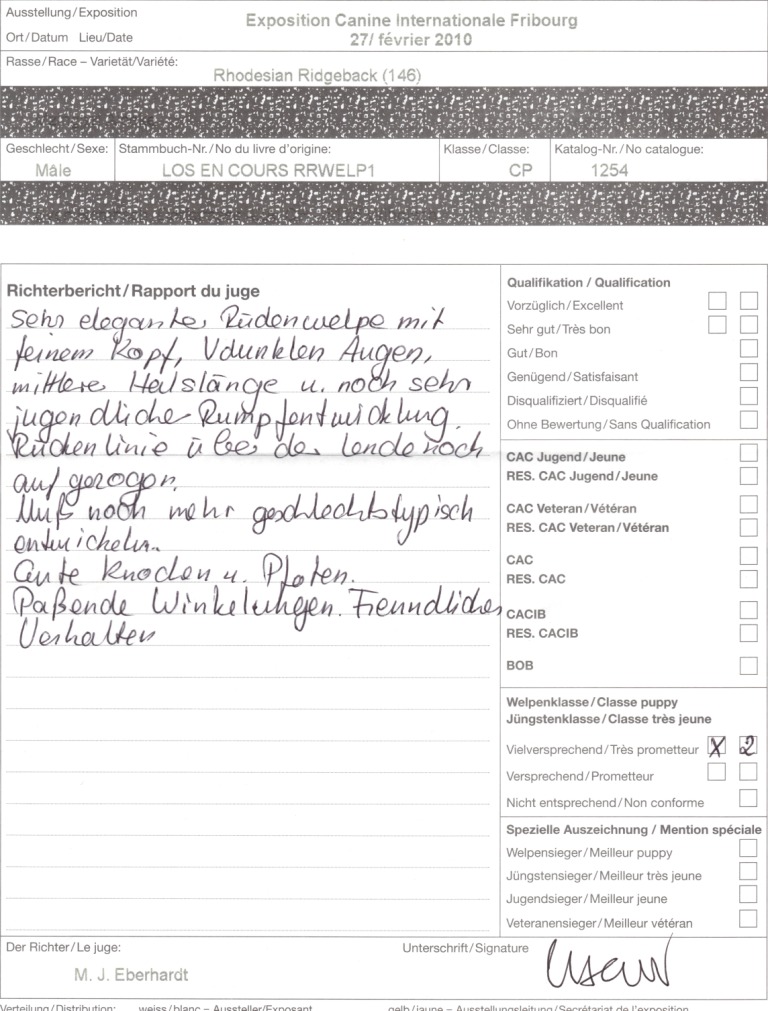 Ausstellung/Exposition
Exposition Canine Internationale Fribourg
Ort/Datum Lieu/Date
27/ février 2010
Rasse/Race – Varietät/Variété:
Rhodesian Ridgeback (146)
Geschlecht/Sexe: Stammbuch-Nr./No du livre d'origine: Klasse/Classe: Katalog-Nr./No catalogue:
Mâle LOS EN COURS RRWELP1 CP 1254
Richterbericht/Rapport du juge
Sehr eleganter Rüdenwelpe mit
feinem Kopf, dunklen Augen,
mittlere Halslänge u. noch sehr
jugendliche Rumpfentwicklung.
Rückenlinie über der Lende noch
aufgezogen.
Muß noch mehr geschlechtstypisch
entwickeln.
Gute Knochen u. Pfoten.
Paßende Winkelungen. Freundliches
Verhalten
Qualifikation / Qualification
Vorzüglich/Excellent
Sehr gut/Très bon
Gut/Bon
Genügend/Satisfaisant
Disqualifiziert/Disqualifié
Ohne Bewertung/Sans Qualification
CAC Jugend/Jeune
RES. CAC Jugend/Jeune
CAC Veteran/Vétéran
RES. CAC Veteran/Vétéran
CAC
RES. CAC
CACIB
RES. CACIB
BOB
Welpenklasse/Classe puppy
Jüngstenklasse/Classe très jeune
Vielversprechend/Très prometteur X 2
Versprechend/Prometteur
Nicht entsprechend/Non conforme
Spezielle Auszeichnung / Mention spéciale
Welpensieger/Meilleur puppy
Jüngstensieger/Meilleur très jeune
Jugendsieger/Meilleur jeune
Veteranensieger/Meilleur vétéran
Der Richter/Le juge: Unterschrift/Signature
M. J. Eberhardt
Verteilung/Distribution: weiss/blanc – Aussteller/Exposant gelb/jaune – Ausstellungsleitung/Secrétariat de l'exposition